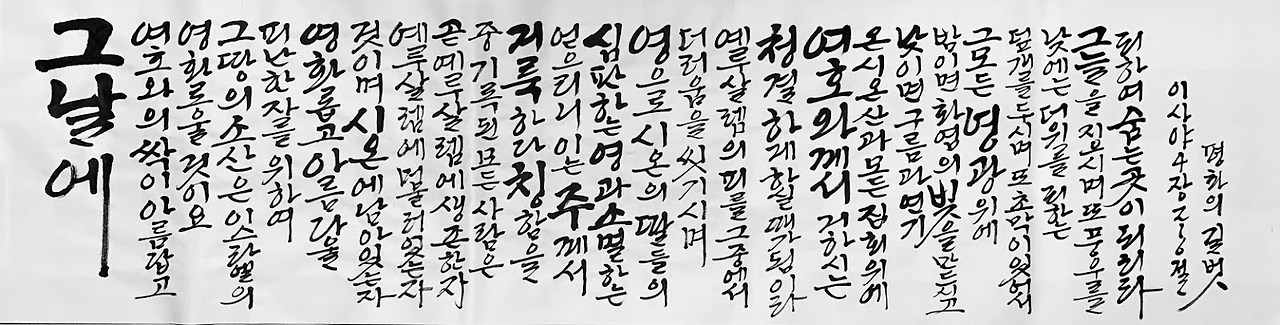 그날에
여호와의 싹이 아름답고
영화로울 것이요
그 땅의 소산은 이스라엘의
피난한 자를 위하여
영화롭고 아름다울
것이며 시온에 남아있는 자
예루살렘에 머물러 있는 자
곧 예루살렘에 생존한 자
중 기록된 모든 사람은
거룩하다 칭함을
얻으리니 이는 주께서
심판하는 영과 소멸하는
영으로 시온의 딸들의
더러움을 씻기시며
예루살렘의 피를 그 중에서
청결하게 하실 때가 됨이라
여호와께서 거하시는
온 시온산과 모든 집회 위에
낮이면 구름과 연기
밤이면 화염의 빛을 만드시고
그 모든 영광 위에
덮개를 두시며 또 초막이 있어서
낮에는 더위를 피하는
그늘을 지으시며 또 풍우를
피하여 숨는 곳이 되리라
이사야 4장
평화의 길벗